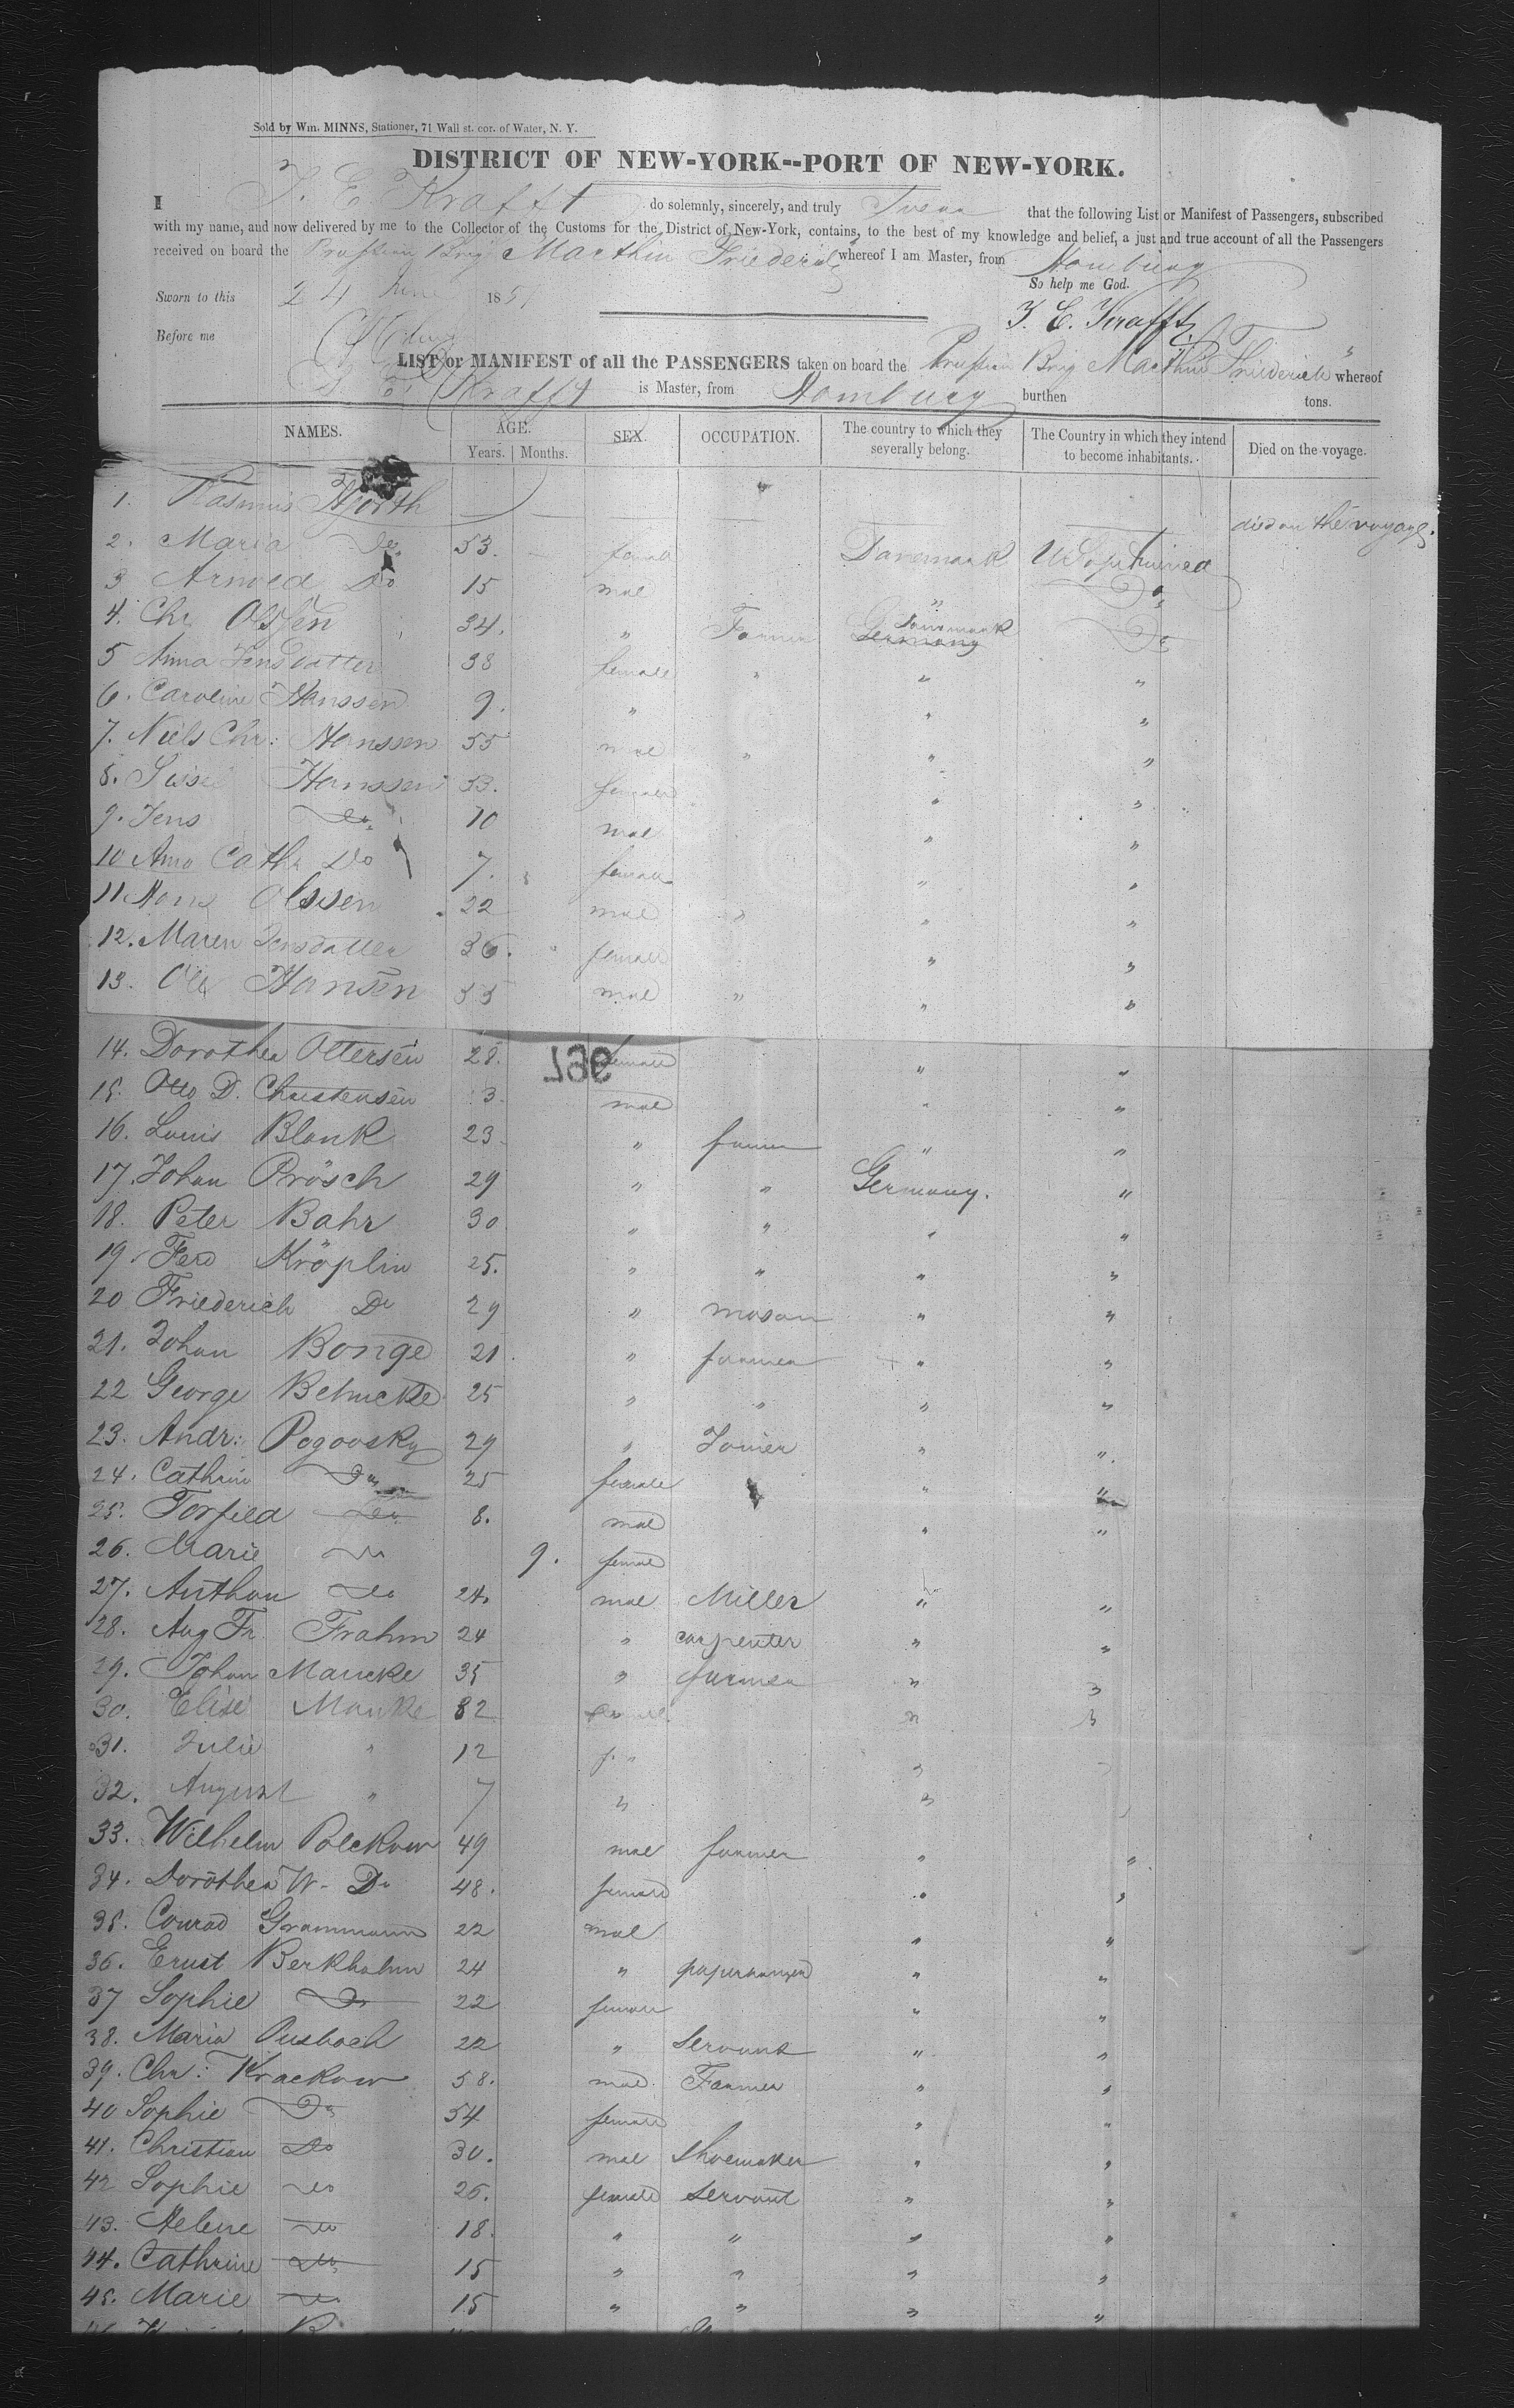 Sold by Wm. MINNS, Stationer, 71 Wall st. cor. of Water, N. Y.
DISTRICT OF NEW-YORK--PORT OF NEW-YORK.
I J. E. Krafft do solemnly, sincerely, and truly Swear that the following List or Manifest of Passengers, subscribed
with my name, and now delivered by me to the Collector of the Customs for the District of New-York, contains, to the best of my knowledge and belief, a just and true account of all the Passengers
received on board the Prussian Brig Marthin Friederich whereof I am Master, from Hamburg
So help me God.
Sworn to this 24 June 1851
J. E. Krafft
Before me
LIST or MANIFEST of all the PASSENGERS taken on board the Prussian Brig Marthin Friederich whereof
J. E. Krafft is Master, from Hamburg burthen tons.
NAMES. AGE. Years. Months. SEX. OCCUPATION. The country to which they severally belong. The Country in which they intend to become inhabitants. Died on the voyage.
1. Rasmus Hjorth died on the voyage.
2. Maria Do 53. female Danemark
3 Arnold Do 15 mal " Do
4. Chr Olssen 34. " Farmer Germany Danemark Do
5 Anna Jensdatter 38 female " " "
6. Caroline Hanssen 9. " " "
7. Niels Chr: Hanssen 55 mal " " "
8. Hanssen 53. female " "
9. Jens Do 10 mal " "
10 Ana Cath Do 7. female " "
11. Hans Olssen 22 mal " " "
12. Maren Jensdatter 36. female " "
13. Ole Hansen 55 mal " " "
14. Dorothea Ottersen 28. female " "
967
15. Otto D. Christensen 3. mal " "
16. Louis Blank 23 " farmer " "
17. Johan Prösch 29 " " Germany. "
18. Peter Bahr 30 " " " "
19. Ferd Kröplin 25. " " " "
20 Friederich Do 29 " mason " "
21. Johan Bonge 21. " farmer " "
22 George Behncke 25 " " " "
23. Andr: Pogovsky 29 " Joiner " "
24. Cathrin Do 25 female " "
25. Torfild Do 8. mal " "
26. Marie Do 9. female
27. Anthon Do 24. mal Miller " "
28. Aug Fr Frahm 24 " carpenter " "
29. Johan Mancke 35 " farmer " "
30. Elise Manke 32 female " "
31. Julie " 12 f. " " "
32. August " 7 " "
33. Wilhelm Polckow 49 mal farmer " "
34. Dorothea W. Do 48. female " "
35. Conrad Grammann 22 mal " "
36. Ernst Berkhahn 24 " paperhanger " "
37 Sophie Do 22 female " "
38. Maria 22 " Servant " "
39. Chr: Krackow 58. mal Farmer " "
40 Sophie Do 54 female " "
41. Christian Do 30. mal Shoemaker " "
42 Sophie Do 26. female Servant " "
43. Helene Do 18. " " " "
44. Cathrine Do 15 " " " "
45. Marie Do 15 " " " "